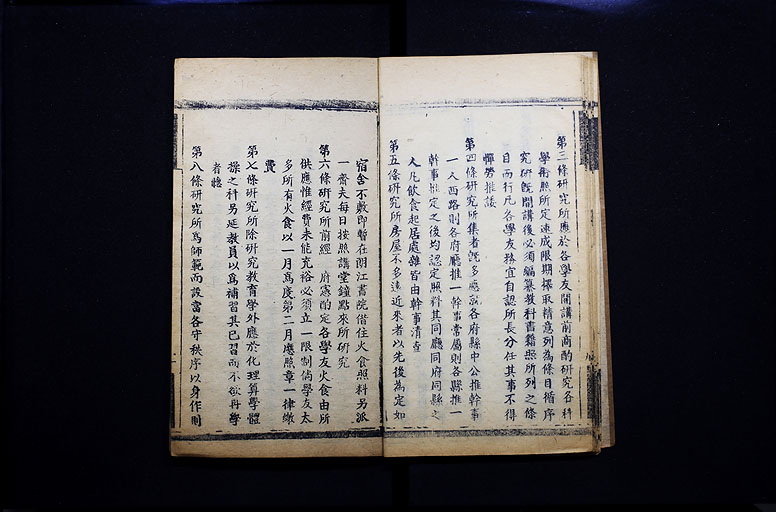 第三條研究所應於各學友開講前商酌研究各科
學衡照所定速成限期擇取精意列為條目循序
究研既開講後必須編纂教科書籍照所列之條
目而行凡各學友務宜自認所長分任其事不得
憚勞推諉
第四條研究所集者既多應就各府縣中公推幹事
一人西路則各府廳推一幹事常屬則各縣推一
幹事推定之後均認定照料其同廳同府同縣之
人凡飲食起居處雜皆由幹事清查
第五條研究所房屋不多遠近來者以先後為定如
宿舍不敷即暫在朗江書院借住火食照料另派
一齋夫每日按照講堂鐘點來所研究
第六條研究所前經 府憲酌定各學友火食由所
供應惟經費未能充裕必須立一限制倘學友太
多所有火食以一月為度第二月應照章一律繳
費
第七條研究所除研究教育學外應於化理算學體
操之科另延教員以為補習其已習而不欲再學
者聽
第八條研究所為師範而設當各守秩序以身作則